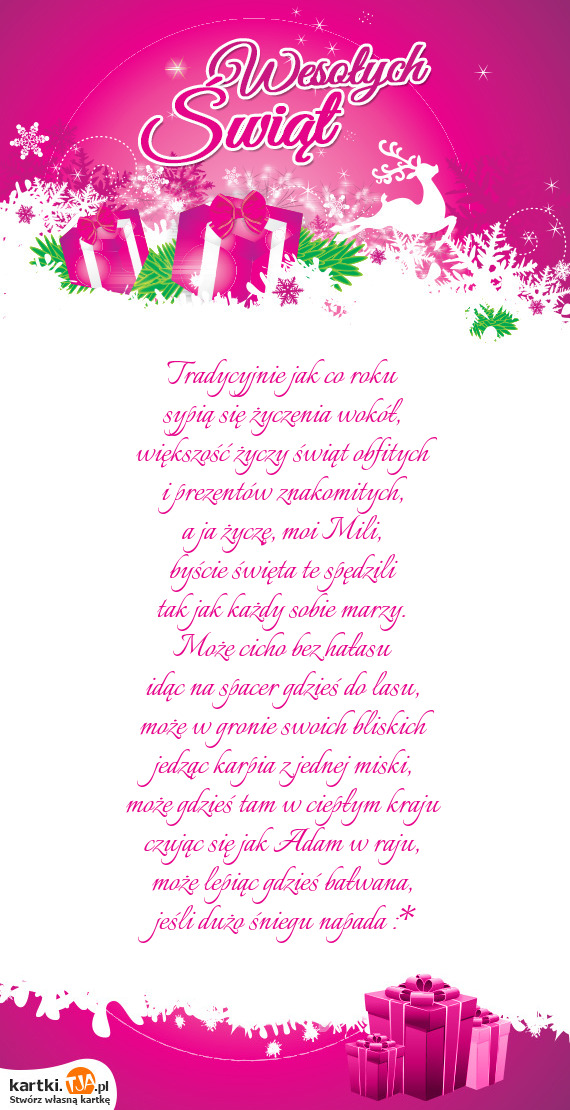 Wesołych
Świąt
Tradycyjnie jak co roku
sypią się życzenia wokół,
większość życzy świąt obfitych
i prezentów znakomitych,
a ja życzę, moi Mili,
byście święta te spędzili
tak jak każdy sobie marzy.
Może cicho bez hałasu
idąc na spacer gdzieś do lasu,
może w gronie swoich bliskich
jedząc karpia z jednej miski,
może gdzieś tam w ciepłym kraju
czując się jak Adam w raju,
może lepiąc gdzieś bałwana,
jeśli dużo śniegu napada :*
kartki.TJA.pl
Stwórz własną kartkę